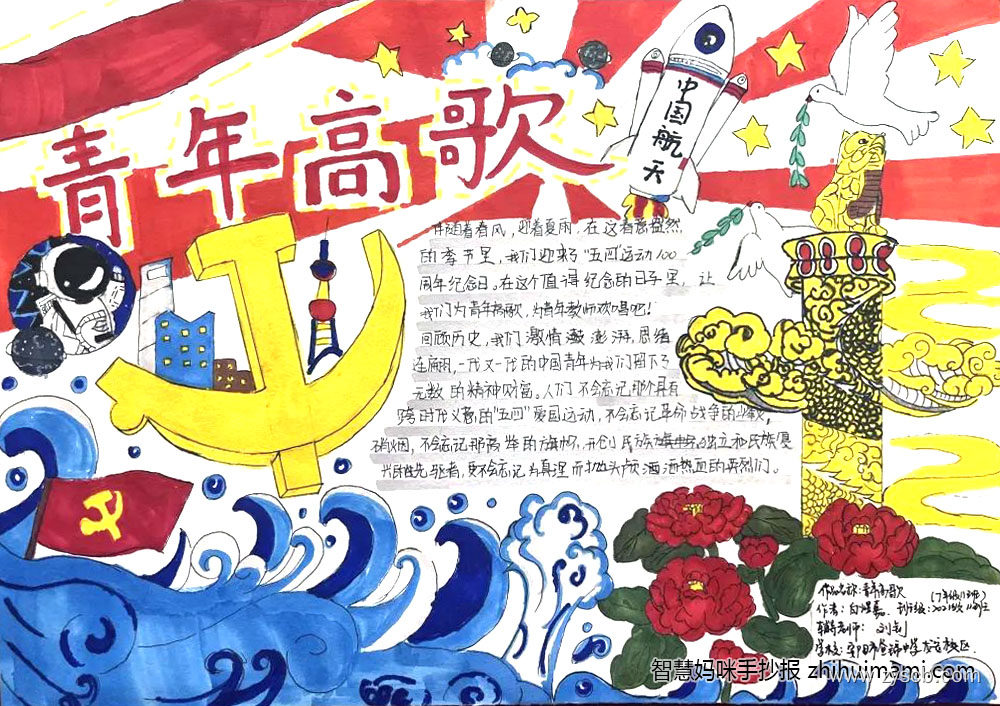 青年高歌
中国航天
伴随着春风，迎着夏雨，在这着意盎然
的季节里，我们迎来了"五四"运动100
周年纪念日。在这个值得纪念的日子里，让
我们为青年高歌，为青年教师欢唱吧！
回顾历史，我们激情澎湃，思绪
连翩，一代又一代的中国青年为我们留下了
无数的精神财富。人们不会忘记那个具有
跨时代意义的"五四"爱国运动，不会忘记革命战争的
硝烟，不会忘记那高举的旗帜，民族独立和民族复
先驱者，更不会忘记为真理而抛头颅洒热血的英烈们。
作品名称：青年高歌
作者：白 班级：2021级
辅导老师：刘
学校：
智慧妈咪手抄报 zhihuimami.com